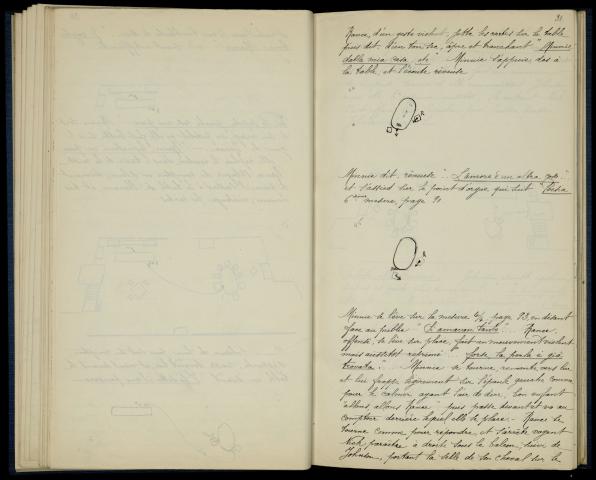 31
Rance, d'un geste violent, jette les cartes sur la table,
puis dit, d'un ton sec, âpre et tranchant "Minnie
dalla mia casa, etc" Minnie s'appuie, dos à
la table, et l'écoute rêveuse
Minnie dit, rêveuse "L'amore è un'altra cosa"
et s'assied sur le point d'orgue qui suit
6ème mesure, page 91
Minnie se lève sur la mesure page 93, en disant
face au public "S'amavan tanto" Rance,
offensé, se lève sur place, fait un mouvement violent
mais aussitôt réprimé "forse la perla è già
trovata" Minnie se tourne, remonte vers lui
et lui frappe légèrement sur l'épaule gauche comme
pour le calmer ayant l'air de dire, bon enfant
"allons allons Rance" puis passe devant et va au
comptoir derrière lequel elle se place - Rance se
tourne comme pour répondre et s'arrête voyant
Nick paraître à droite sous le balcon, suivi de
Johnson, portant la selle de son cheval sur le